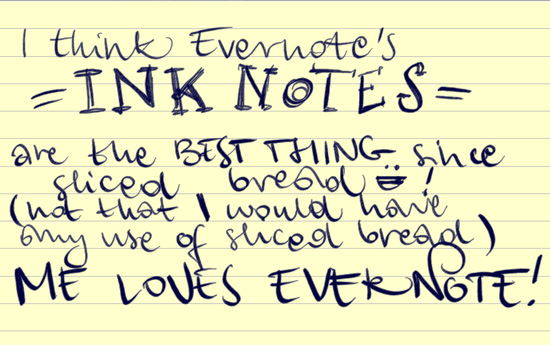 I think Evernote's
= INK NOTES =
are the BEST THING since
sliced bread !
(not that I would have
any use of sliced bread)
ME LOVES EVERNOTE!